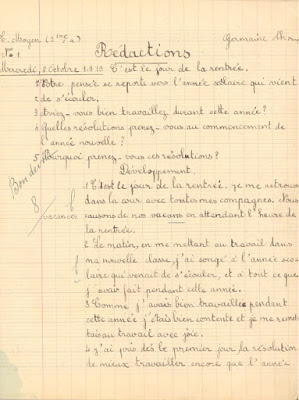 C. Moyen (2ème a) Germaine
No 1 Rédactions
Mercredi, 8 Octobre 1919 C'est le jour de la rentrée.
1 Votre pensée se reporte vers l'année scolaire qui vient
de s'écouler,
3 Aviez-vous bien travaillez durant cette année?
4 Quelles résolutions prenez-vous au commencement
de l'année nouvelle?
5 Pourquoi prenez-vous ces résolutions?
Développement.
Bon devoir
8
1 C'est le jour de la rentrée, je me retrouve
dans la cour avec toutes mes compagnes. Nous
vacances causons de nos vacans en attendant l'heure de
la rentrée.
2 Le matin, en me mettant au travail dans
ma nouvelle classe, j'ai songé à l'année sco-
laire qui venait de s'écouler, et à tout ce que
j'avais fait pendant cette année.
3 Comme j'avais bien travaillé pendant
cette année j'étais bien contente et je me remet-
tais au travail avec joie.
4 J'ai pris dès le premier jour la résolution
de mieux travailler encore que l'année